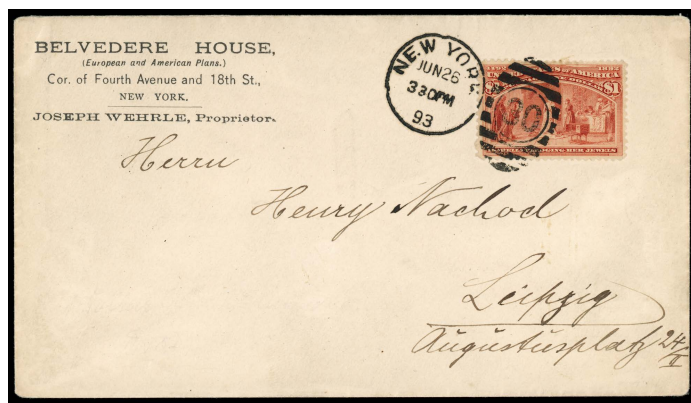 BELVEDERE HOUSE,
(European and American Plans.)
Cor. of Fourth Avenue and 18th St.,
NEW YORK.
JOSEPH WEHRLE, Proprietor.
NEW YORK
JUN 26
330PM
93
OF AMERICA
$1
30
PLEDGING HER JEWELS
Herrn
Henry Nachod
Leipzig
Augustusplatz 24/II